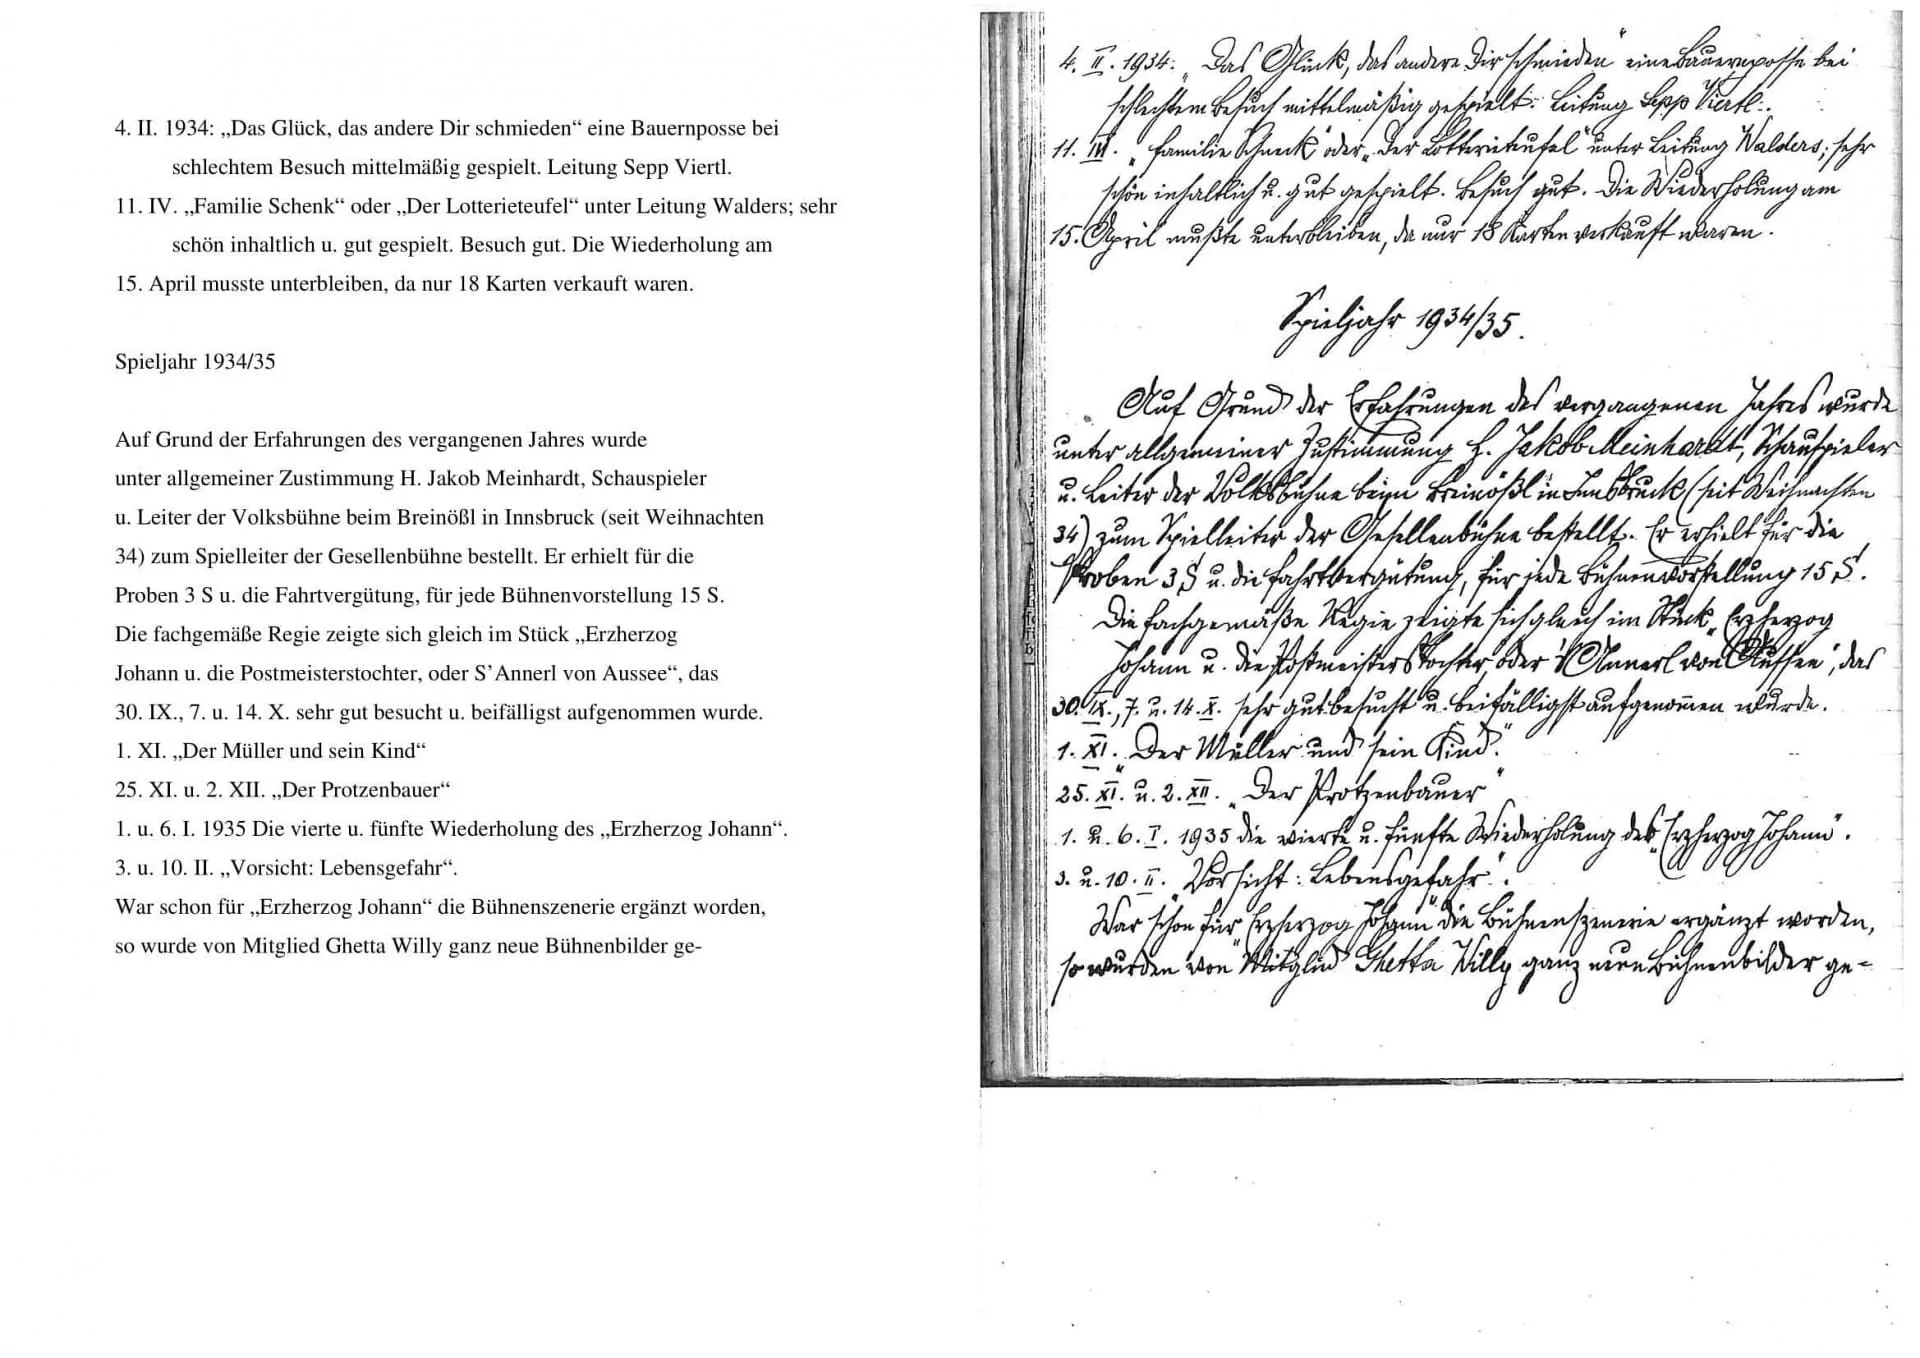 4. II. 1934: „Das Glück, das andere Dir schmieden“ eine Bauernposse bei
schlechtem Besuch mittelmäßig gespielt. Leitung Sepp Viertl.
11. IV. „Familie Schenk“ oder „Der Lotterieteufel“ unter Leitung Walders; sehr
schön inhaltlich u. gut gespielt. Besuch gut. Die Wiederholung am
15. April musste unterbleiben, da nur 18 Karten verkauft waren.
Spieljahr 1934/35
Auf Grund der Erfahrungen des vergangenen Jahres wurde
unter allgemeiner Zustimmung H. Jakob Meinhardt, Schauspieler
u. Leiter der Volksbühne beim Breinößl in Innsbruck (seit Weihnachten
34) zum Spielleiter der Gesellenbühne bestellt. Er erhielt für die
Proben 3 S u. die Fahrtvergütung, für jede Bühnenvorstellung 15 S.
Die fachgemäße Regie zeigte sich gleich im Stück „Erzherzog
Johann u. die Postmeisterstochter, oder S’Annerl von Aussee“, das
30. IX., 7. u. 14. X. sehr gut besucht u. beifälligst aufgenommen wurde.
1. XI. „Der Müller und sein Kind“
25. XI. u. 2. XII. „Der Protzenbauer“
1. u. 6. I. 1935 Die vierte u. fünfte Wiederholung des „Erzherzog Johann“.
3. u. 10. II. „Vorsicht: Lebensgefahr“.
War schon für „Erzherzog Johann“ die Bühnenszenerie ergänzt worden,
so wurde von Mitglied Ghetta Willy ganz neue Bühnenbilder ge-
4. II. 1934: „Das Glück, das andere Dir schmieden“ eine Bauernposse bei
schlechtem Besuch mittelmäßig gespielt. Leitung Sepp Viertl.
11. „Familie Schneck“ oder „Der Lotterieteufel“ unter Leitung Walders; sehr
schön inhaltlich u. gut gespielt. Besuch gut. Die Wiederholung am
15. April mußte unterbleiben, da nur 18 Karten verkauft waren.
Spieljahr 1934/35.
Auf Grund der Erfahrungen des vergangenen Jahres wurde
unter allgemeiner Zustimmung H. Jakob Meinhardt, Schauspieler
u. Leiter der Volksbühne beim Breinößl in Innsbruck (seit Weihnachten
34) zum Spielleiter der Gesellenbühne bestellt. Er erhielt für die
Proben 3 S u. die Fahrtvergütung, für jede Bühnenvorstellung 15 S.
Die fachgemäße Regie zeigte sich gleich im Stück „Erzherzog
Johann u. die Postmeisterstochter, oder 's Annerl von Aussee“, das
30. IX., 7. u. 14. X. sehr gut besucht u. beifälligst aufgenom̅en wurde.
1. XI. „Der Müller und sein Kind.“
25. XI. u. 2. XII. „Der Protzenbauer“
1. u. 6. I. 1935 die vierte u. fünfte Wiederholung des „Erzherzog Johann“.
3. u. 10. II. „Vorsicht: Lebensgefahr“.
War schon für „Erzherzog Johann“ die Bühnenszenerie ergänzt worden,
so wurden von Mitglied Ghetta Willy ganz neue Bühnenbilder ge-